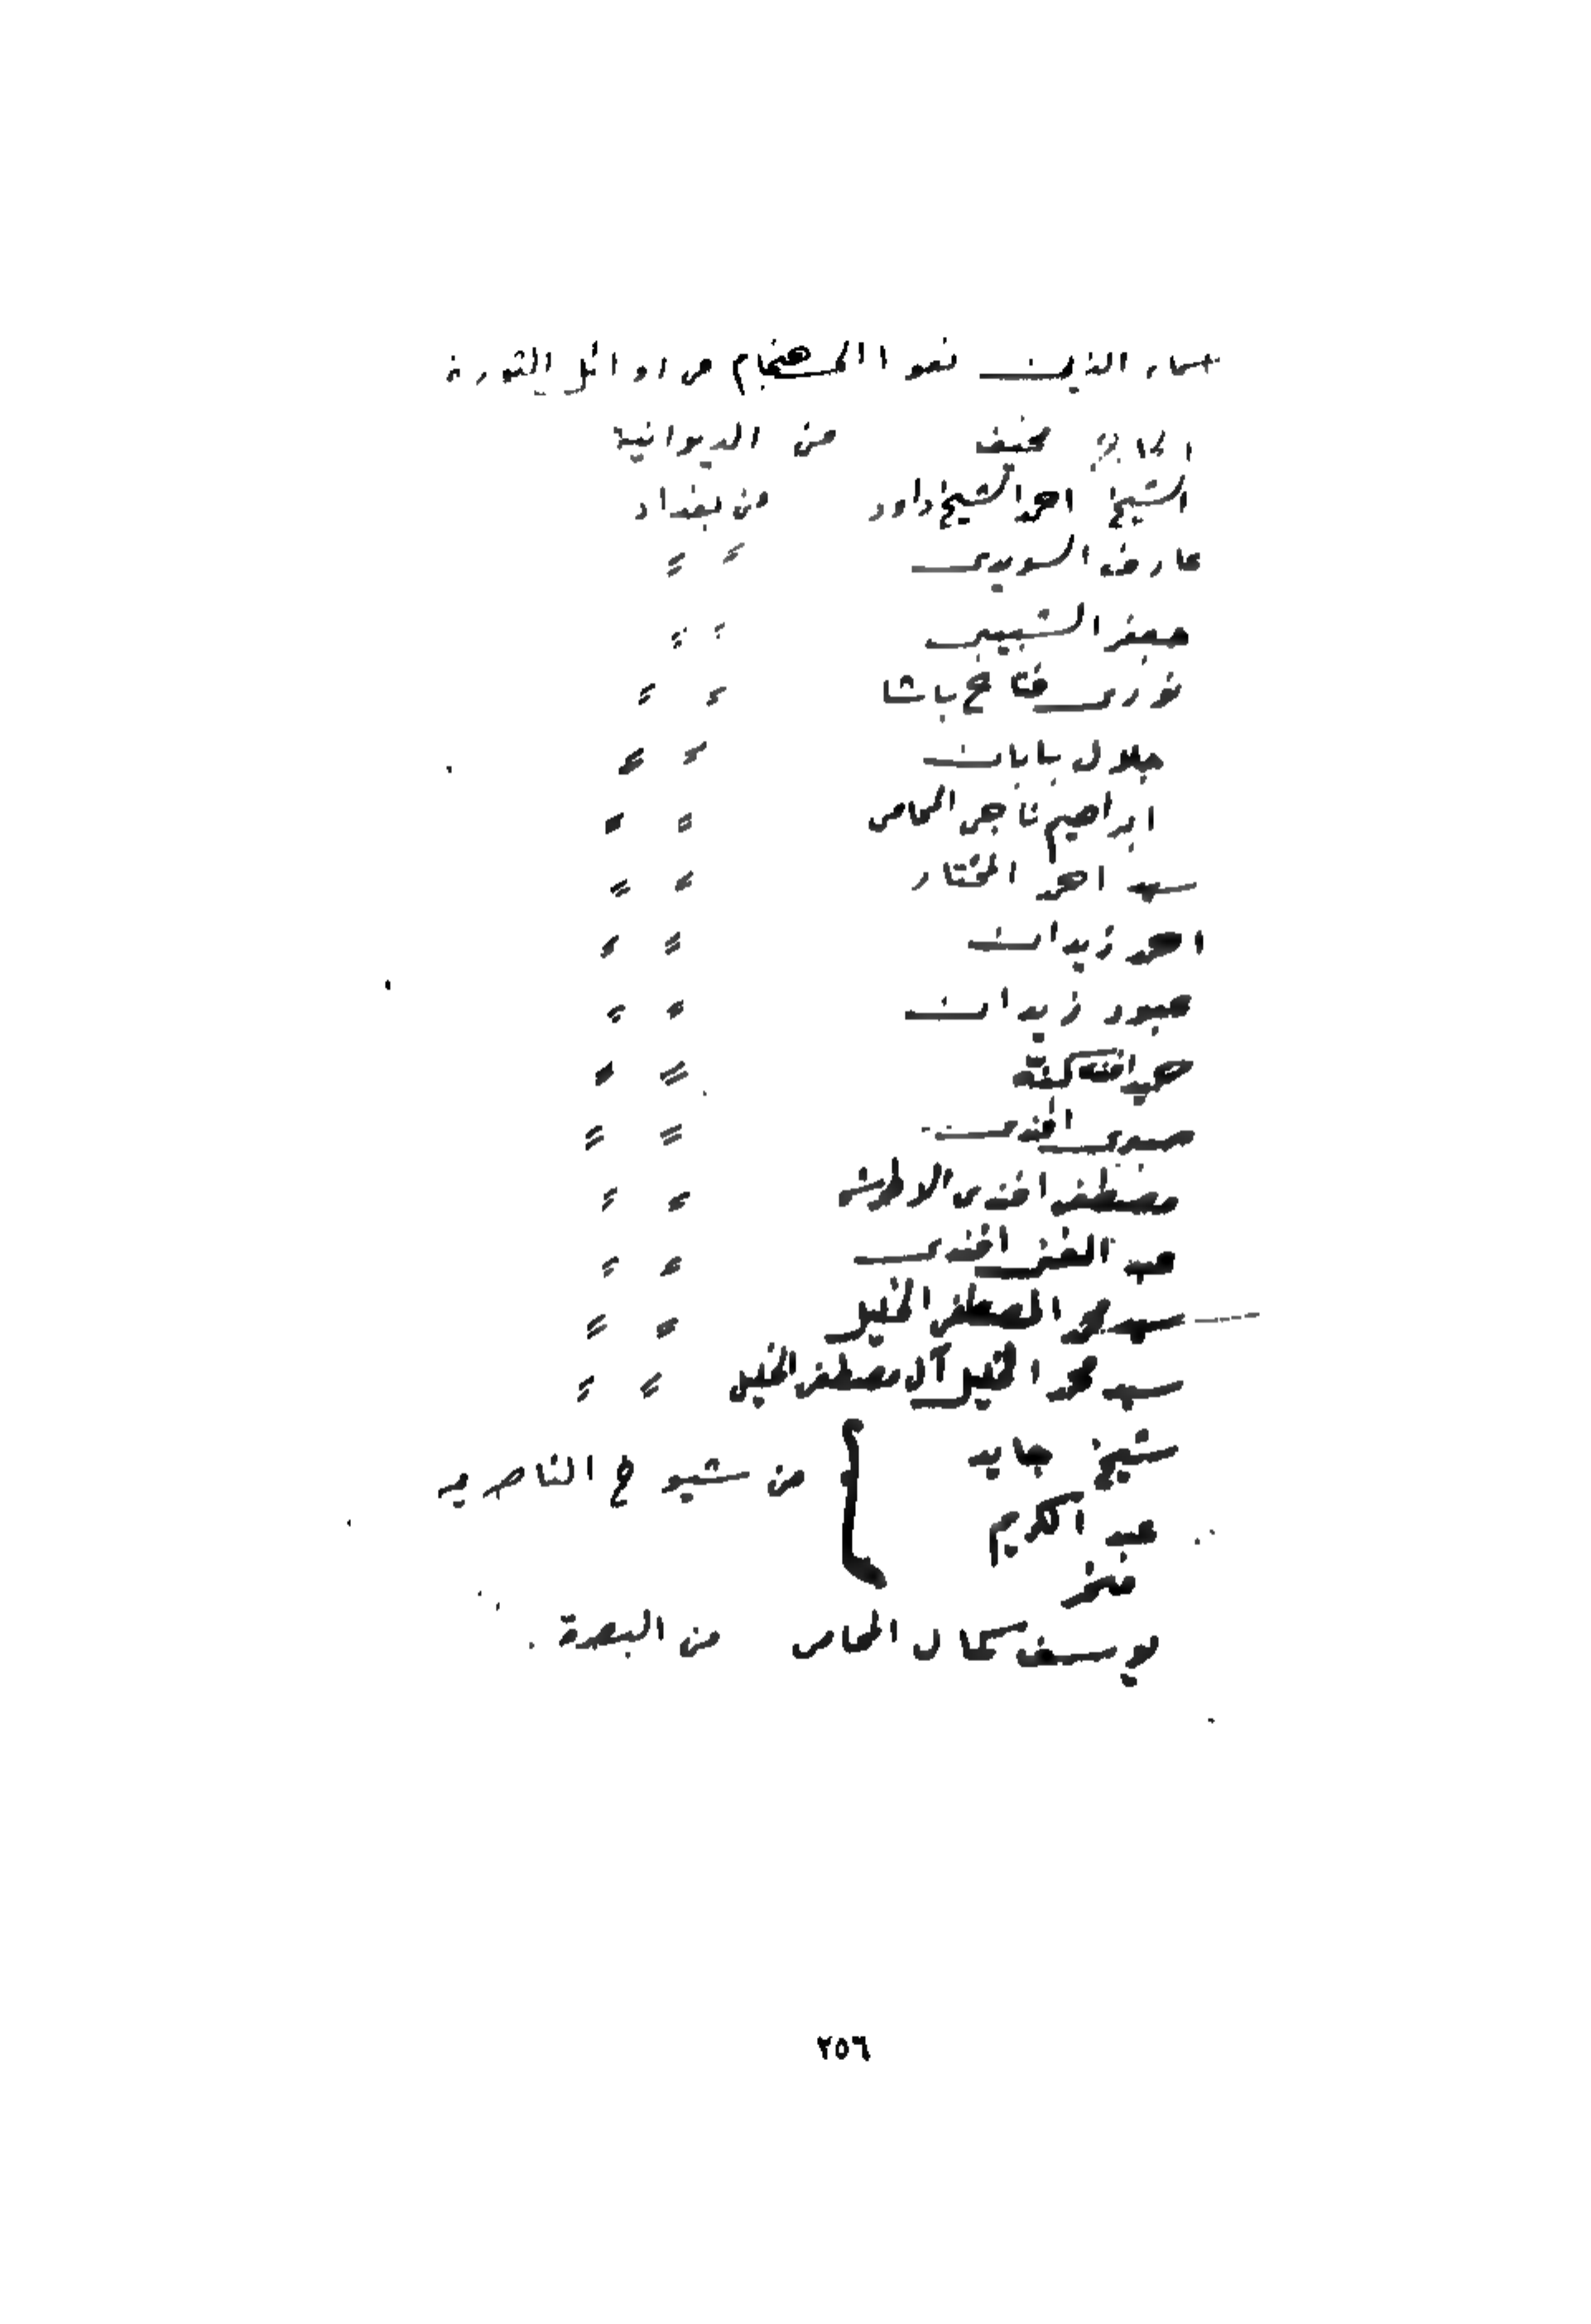 اسماء الذين نفوا الى هنجام من اوائل الثورة
الحاج مخيف من الديوانية
الشيخ احمد الشيخ داود من بغداد
عارف السويدى " "
جعفر الشبيبى " "
نورى فتاح باشا " "
جلال بابان " "
ابراهيم ناجى المحامى " "
سيد احمد المختار " "
احمد زيدان " "
عبود زيدان " "
حميد افندى كنه " "
صبرى افندى " "
مصطفى افندى الاطرش " "
عبد الغنى افندى " "
سيد محمد المصطفى الخليل " "
سيد محمود الخليل آل مصطفى الخليل " "
شيخ جايد
من شيوخ الناصريه
عبد الكريم
يوسف كمال المحامى من البصرة .
٢٥٦